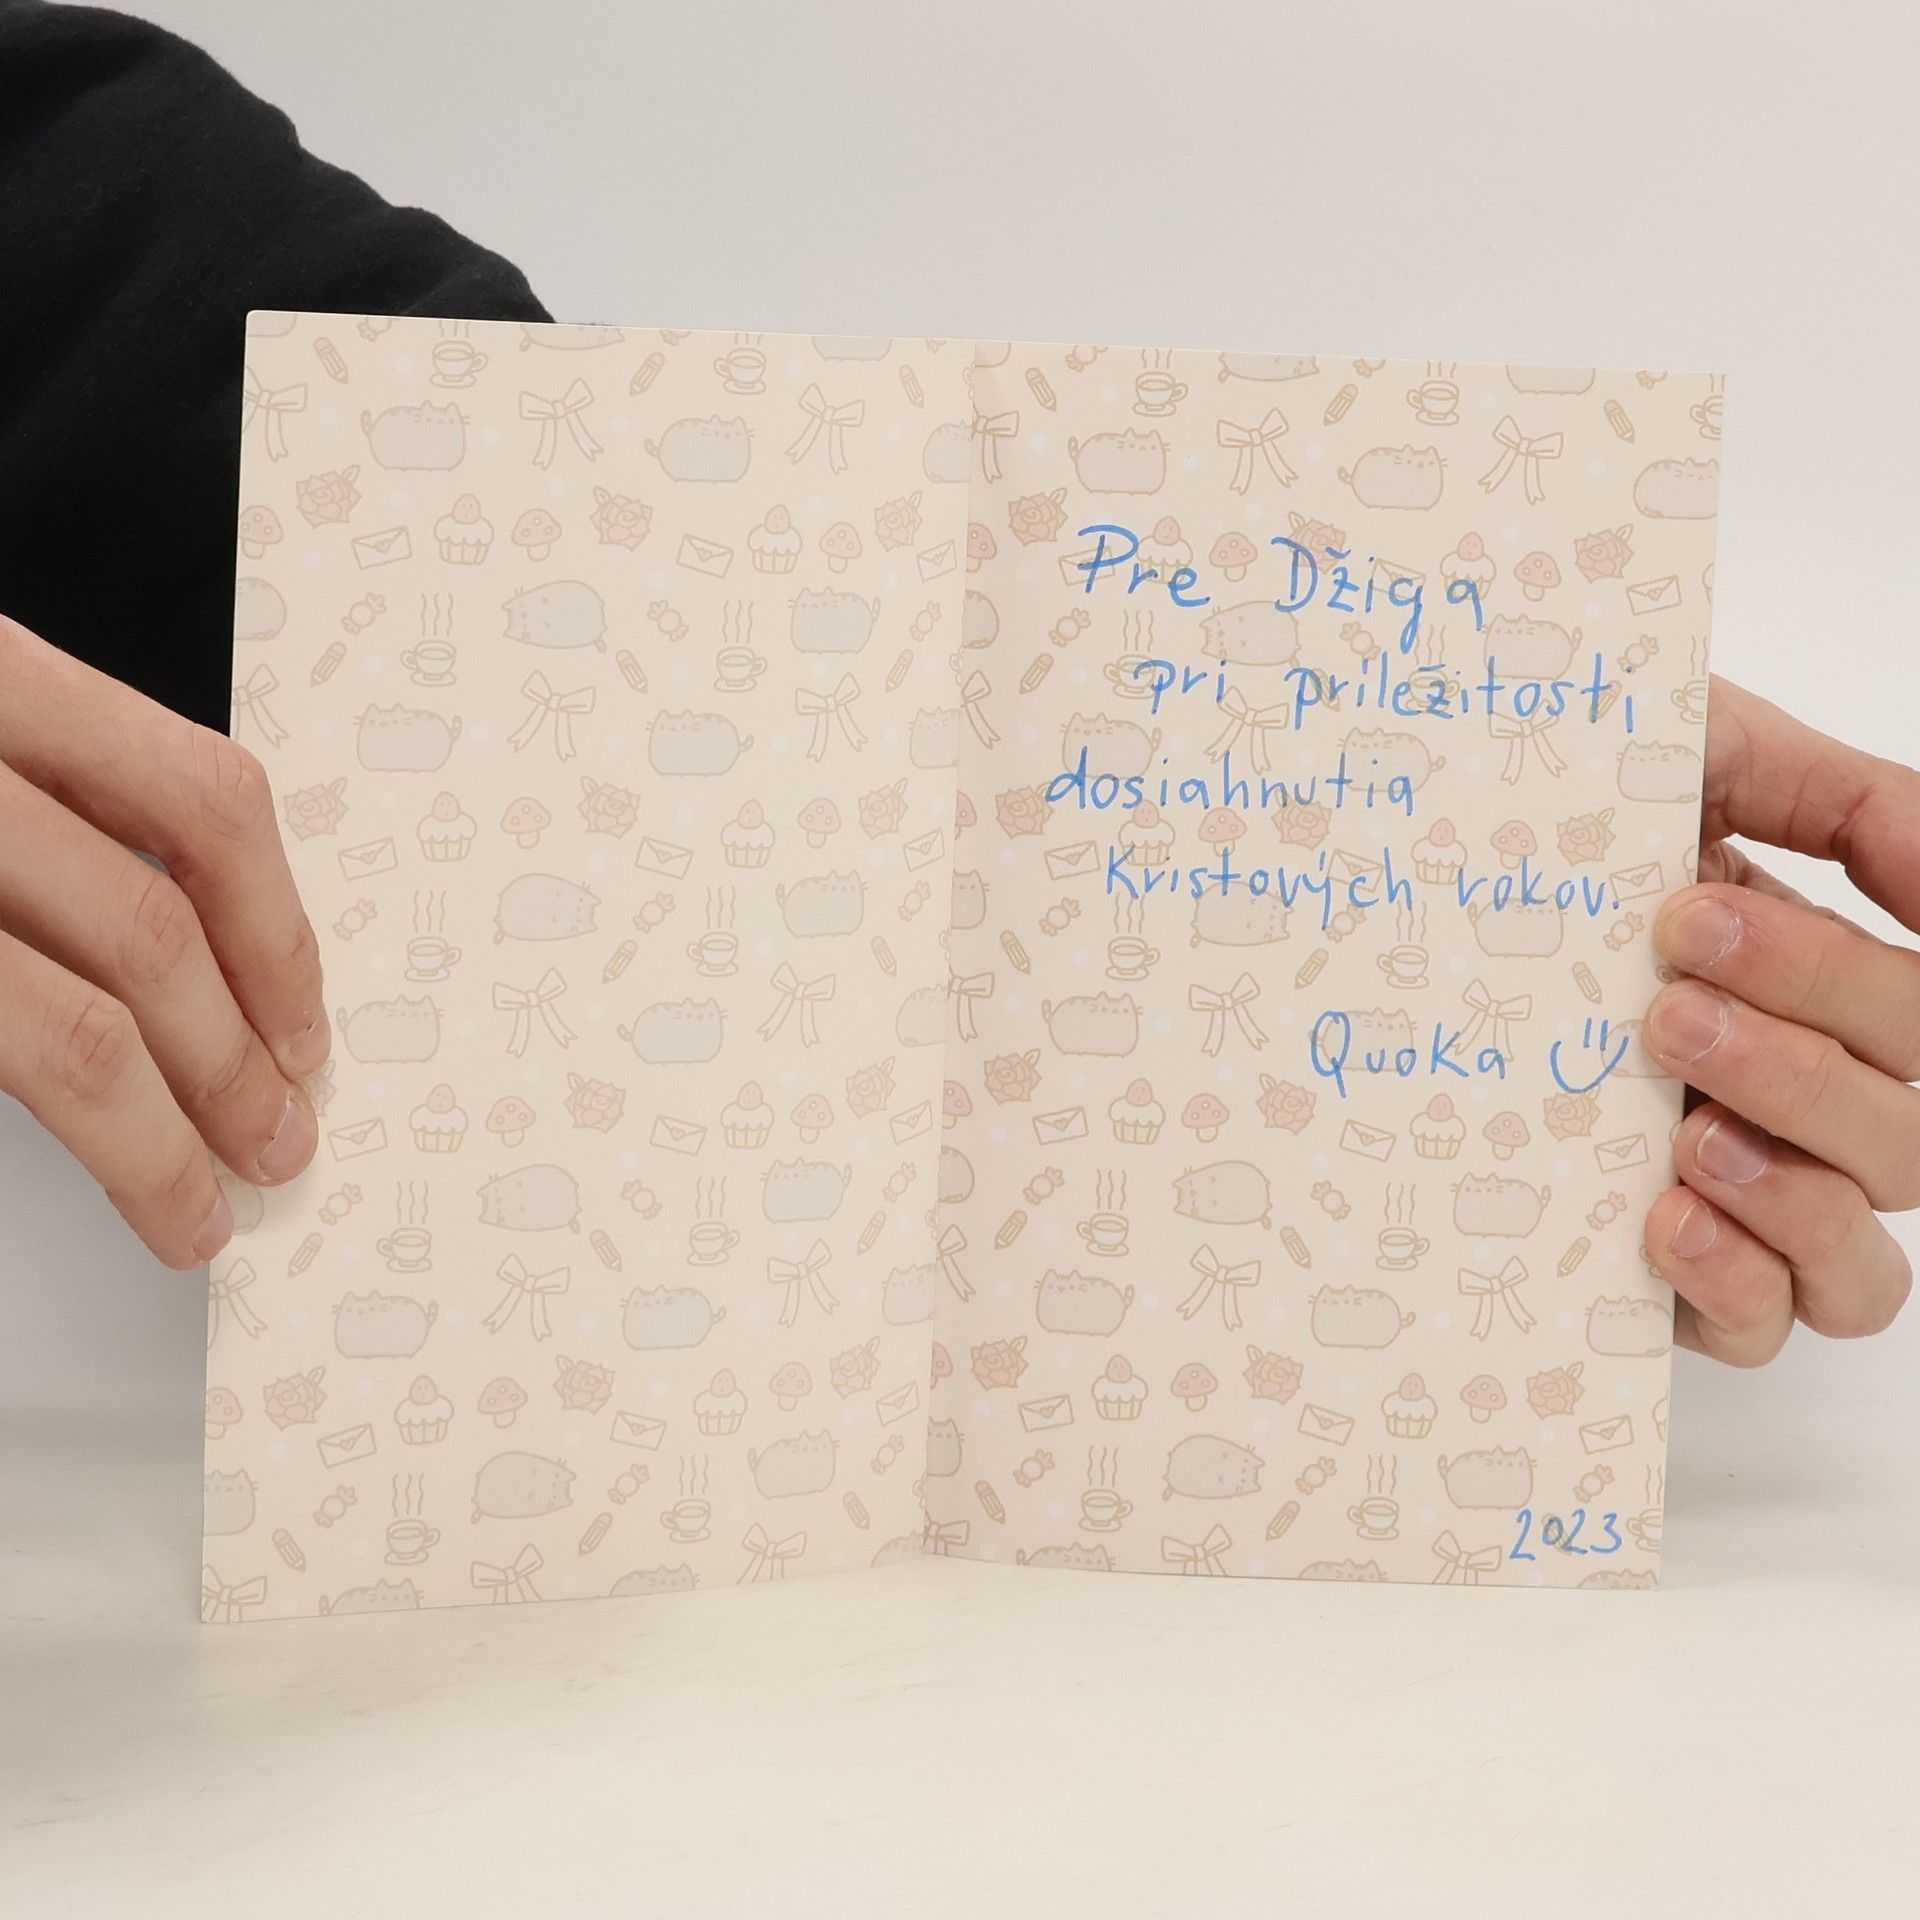 Pre Džiga
pri príležitosti
dosiahnutia
Kristových rokov.
Quoka
2023